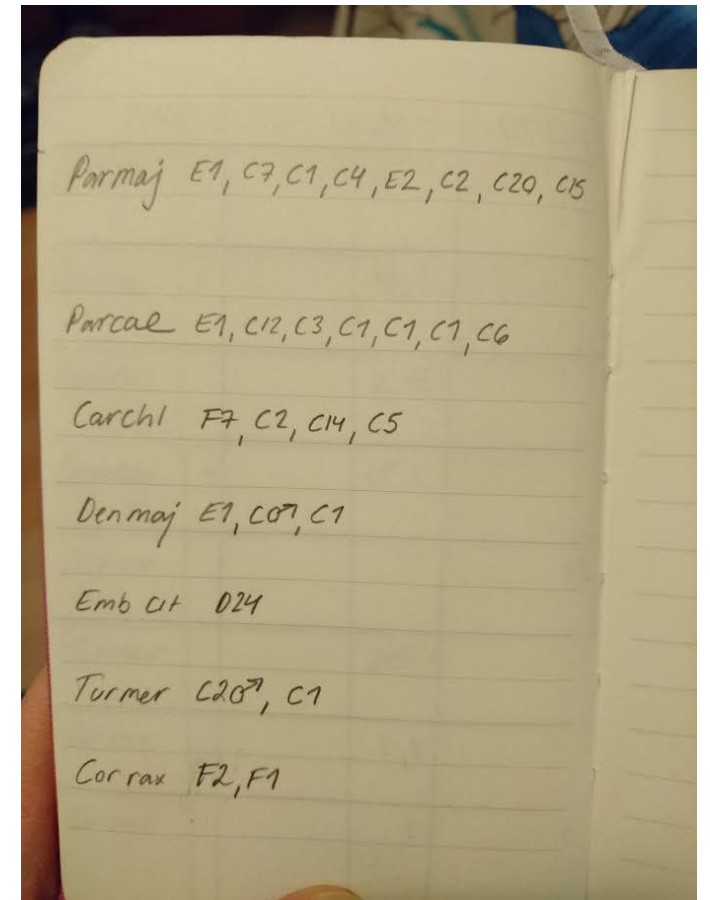 Parmaj E1, C7, C1, C4, E2, C2, C20, C15
Parcae E1, C12, C3, C1, C1, C1, C6
Carchl F7, C2, C14, C5
Denmaj E1, C♂, C1
Emb cit D24
Turmer C2♂, C1
Cor rax F2, F1